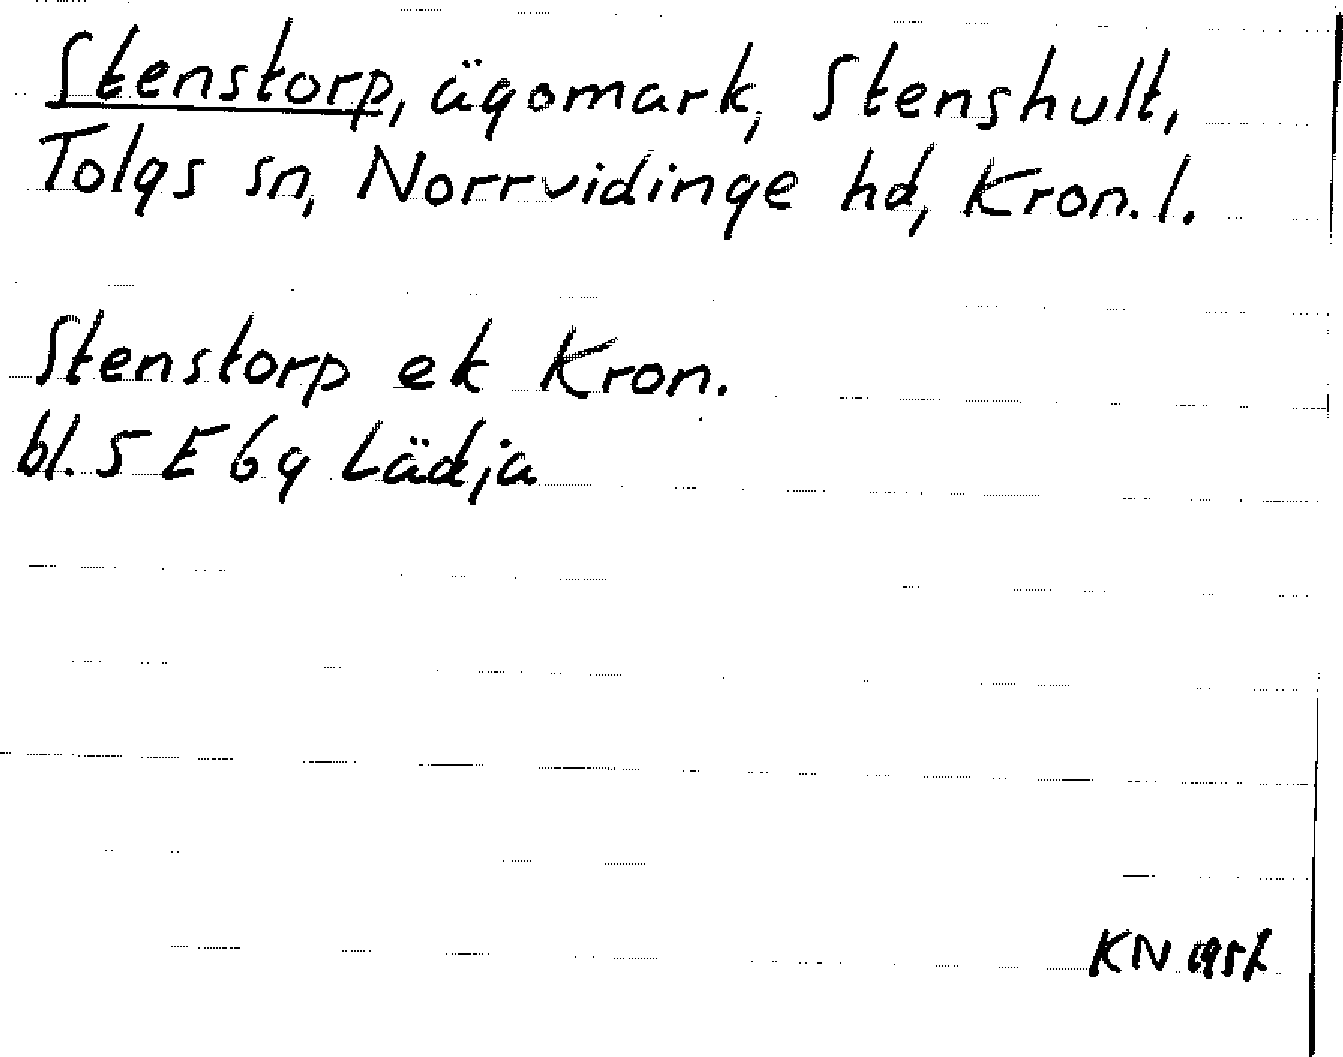 Stenstorp, ägomark, Stenshult,
Tolgs sn, Norrvidinge hd, Kron. l.
Stenstorp ek Kron.
bl. 5 E 6g Lädja
KN